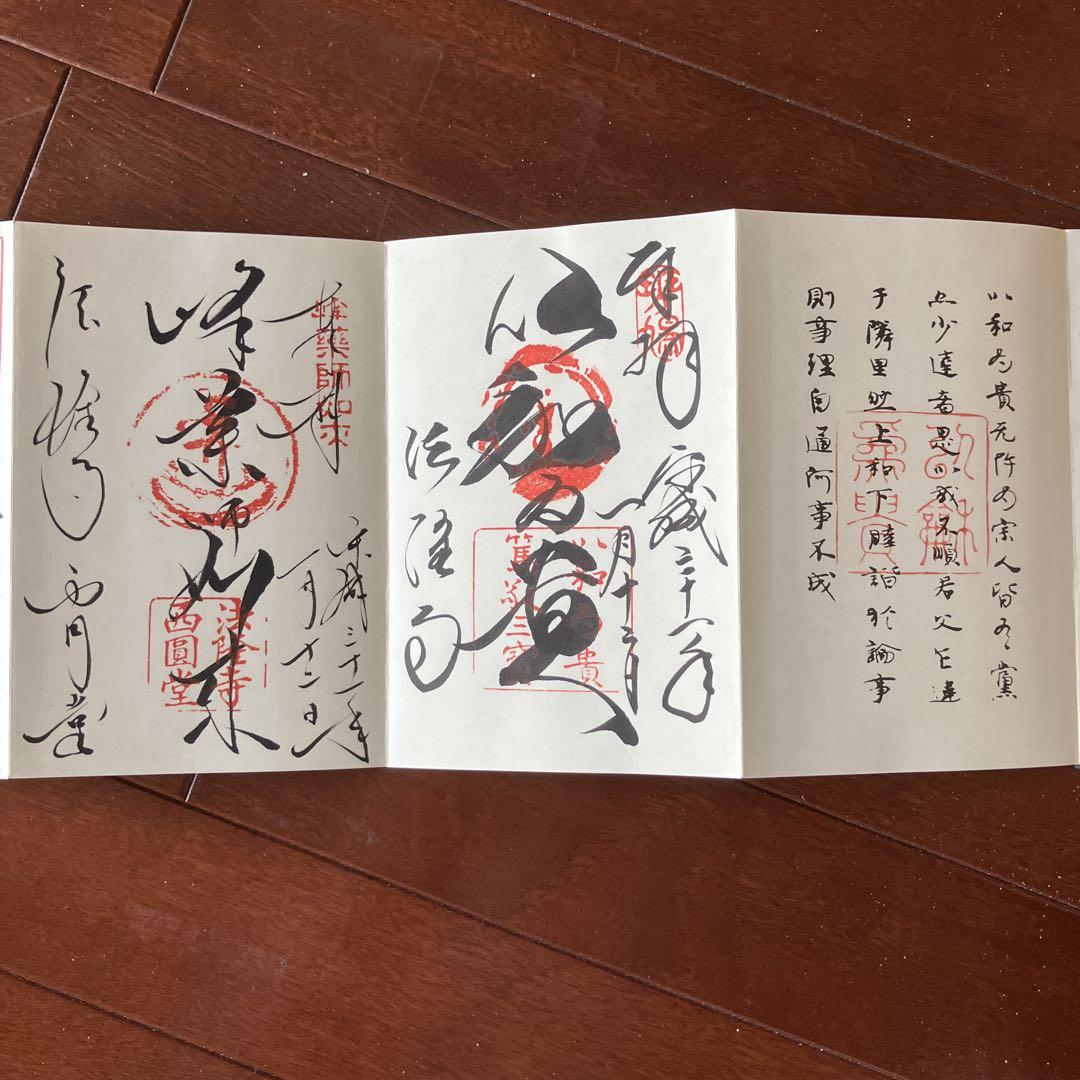 以和為貴无忤為宗人皆有黨
亦少達者是以或不順君父乍違
于隣里然上和下睦諧於論事
則事理自通何事不成
以和
為貴
奉拝
斑鳩
平成三十一年
一月十二日
以和為貴
以和為貴
篤敬三寳
法隆寺
奉拝
峰藥師如来
平成三十一年
一月十二日
峰薬師如来
法隆寺
西圓堂
法隆寺
西円堂